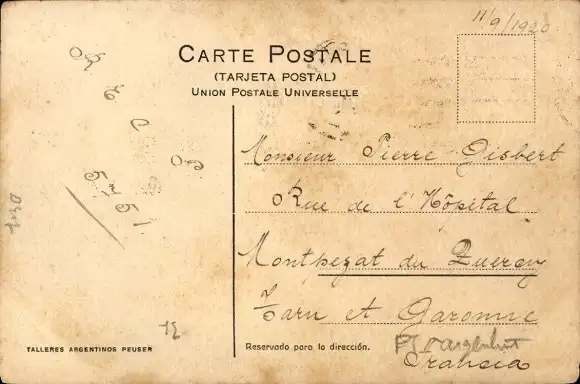 11/9/1920
CARTE POSTALE
(TARJETA POSTAL)
UNION POSTALE UNIVERSELLE
Monsieur Pierre Gisbert
Rue de l'Hôpital
Montpezat du Quercy
Tarn et Garonne
Francia
12
TALLERES ARGENTINOS PEUSER
Reservado para la dirección.